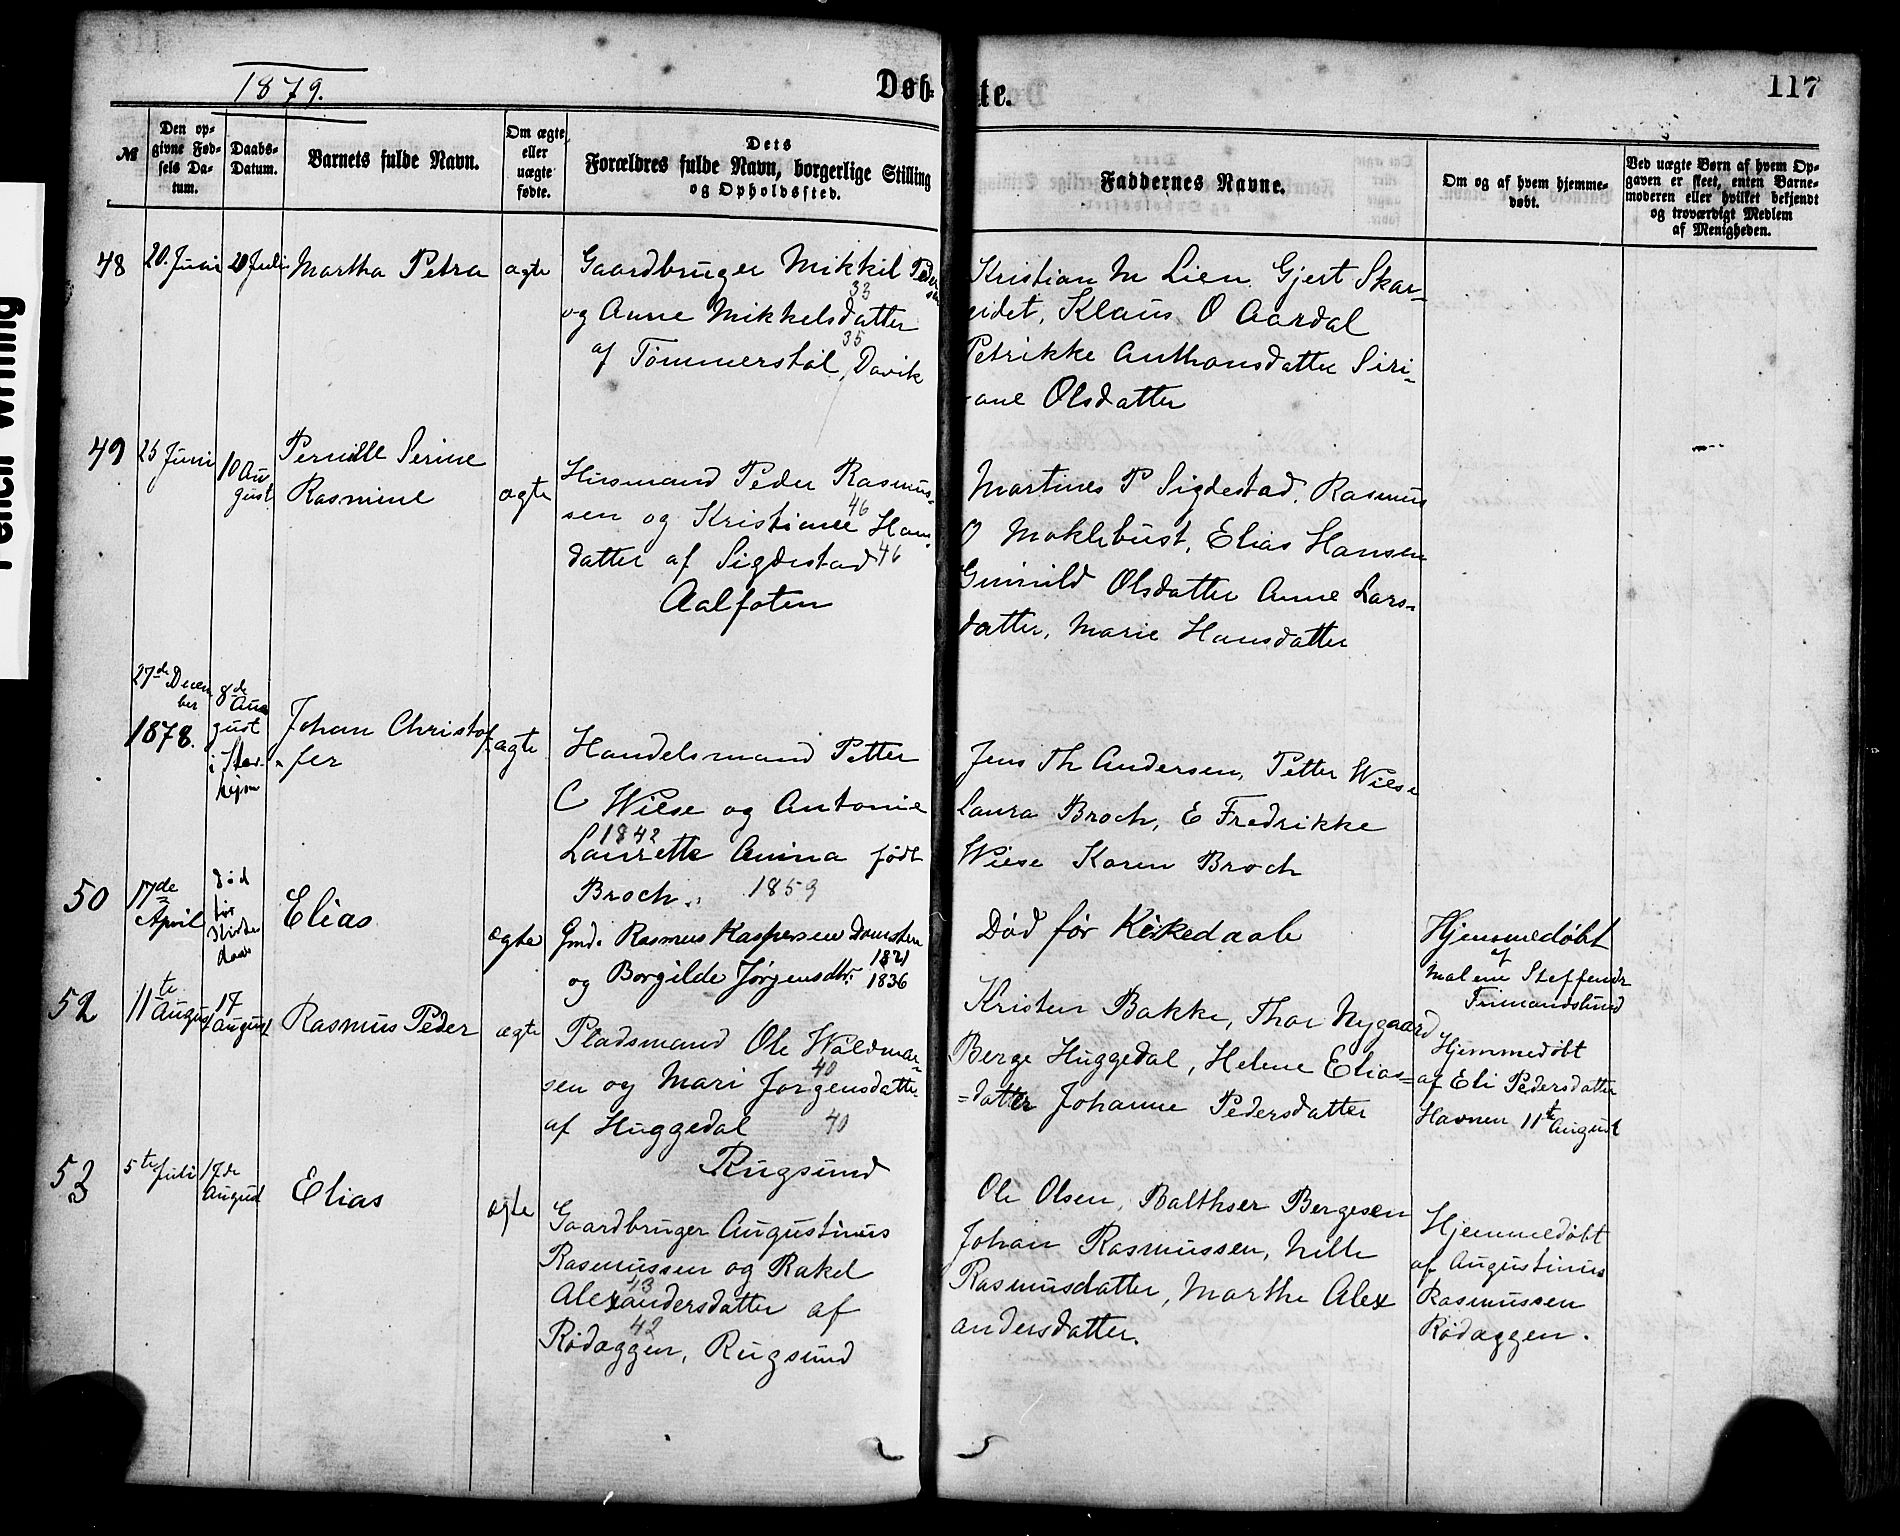 1879.
Døb-
te.
117
№
Den op-
givne Fød-
sels Da-
tum.
Daabs-
Datum.
Barnets fulde Navn.
Om ægte
eller
uægte
fødte.
Dets
Forældres fulde Navn, borgerlige Stilling
og Opholdssted.
Faddernes Navne.
Om og af hvem hjemme-
døbt.
Ved uægte Børn af hvem Op-
gaven er skeet, enten Barne-
moderen eller hvilket bekjendt
og troværdigt Medlem
af Menigheden.
48
20. Juni
20 Juli
Martha Petra
ægte
Gaardbruger Mikkel Peder
sen
33
og Anne Mikkelsdatter
35
af Tømmerstøl, Davik
Kristian M Lien Gjert Skar-
eidet, Klaus O Aardal
Petrikke Anthonsdatter Siri-
ane Olsdatter
49
25 Juni
10 Au
gust
Pernille Serine
Rasmine
ægte
Husmand Peder Rasmus-
46
sen og Kristiane Hans-
datter af Sigdestad 46
Aalfoten
Martines P Sigdestad. Rasmus
O Moklebust, Elias Hansen
Gunnild Olsdatter Anne Lars-
datter, Marie Hansdatter
27de Decem
ber
1878.
8de
Au
gust
i
Johan Christof-
fer
ægte
Handelsmand Petter
C Wiese og Antonie
1842
Laurette Anina født
Broch. 1859
Jens Th Andersen, Petter Wiese
Laura Broch, E Fredrikke
Wiese Karen Broch
50
17de
April
død
før
Kirke
daab
Elias
ægte
Gmd. Rasmus Kaspersen Domsten
1821
og Borgilde Jørgensdtr. 1836
Død før Kirkedaab
Hjemmedøbt
af
Malene Steffensdr
52
11te
August
17
August
Rasmus Peder
ægte
Pladsmand Ole Waldmar-
40
sen og Mari Jørgensdatter
af Huggedal 40
Rugsund
Kristen Bakke, Thor Nygaard
Berge Huggedal, Helene Elias=
=datter Johanne Pedersdatter
Hjemmedøbt
af Eli Pedersdatter
Havnen 11te August
53
5te Juli
17de
August
Elias
ægte
Gaardbruger Augustinus
Rasmussen og Rakel
43
Alexandersdatter af
42
Rødaggen, Rugsund
Ole Olsen, Balthser Bergesen
Johan Rasmussen, Nille
Rasmusdatter, Marthe Alex
andersdatter.
Hjemmedøbt
af Augustinus
Rasmussen
Rødaggen.